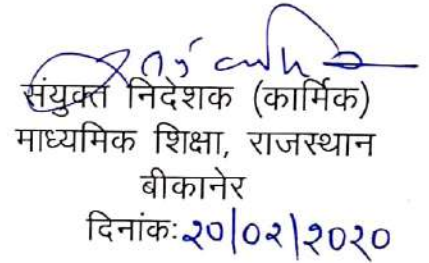 संयुक्त निदेशक (कार्मिक)
माध्यमिक शिक्षा, राजस्थान
बीकानेर
दिनांक:२०|०२|२०२०